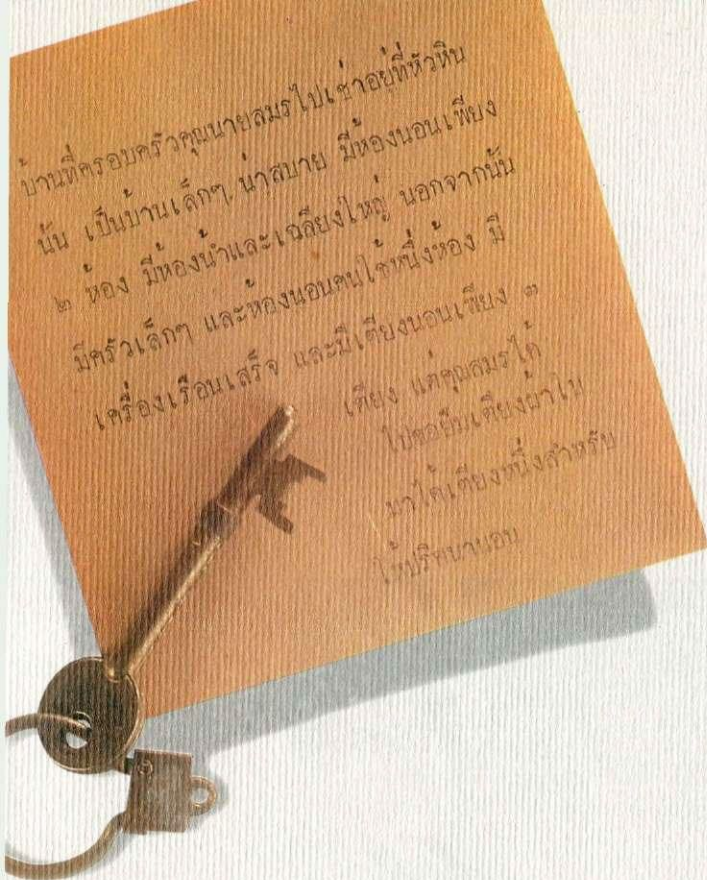 บ้านที่ครอบครัวคุณนายสมรไปเช่าอยู่ที่หัวหิน
นั้น เป็นบ้านเล็กๆ น่าสบาย มีห้องนอนเพียง
๒ ห้อง มีห้องน้ำและเฉลียงใหญ่ นอกจากนั้น
มีครัวเล็กๆ และห้องนอนคนใช้หนึ่งห้อง มี
เครื่องเรือนเสร็จ และมีเตียงนอนเพียง ๓
เตียง แต่คุณสมรได้
ไปขอยืมเตียงผ้าใบ
มาได้เตียงหนึ่งสำหรับ
ให้ปริศนานอน